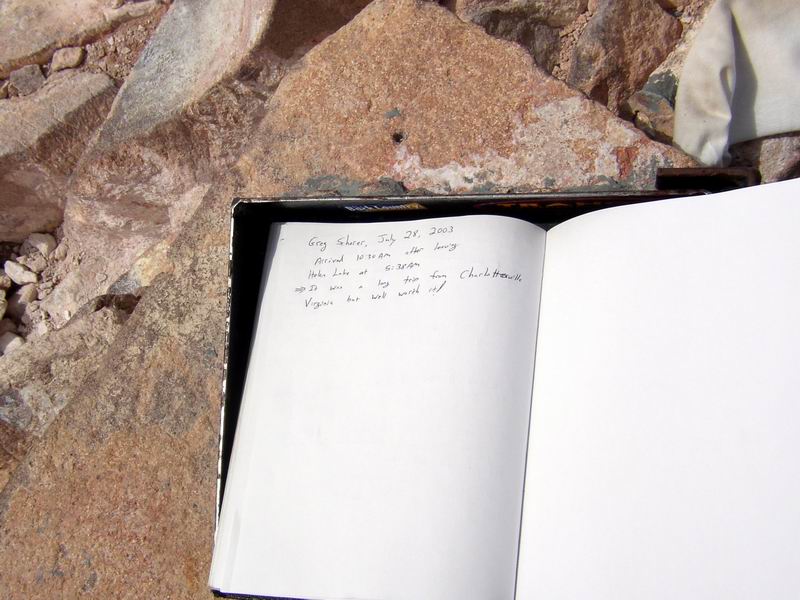 Greg Scherer, July 28, 2003
Arrived 10:30 AM after leaving
Helen Lake at 5:38 AM
⇒ It was a long trip from Charlottesville
Virginia but well worth it!